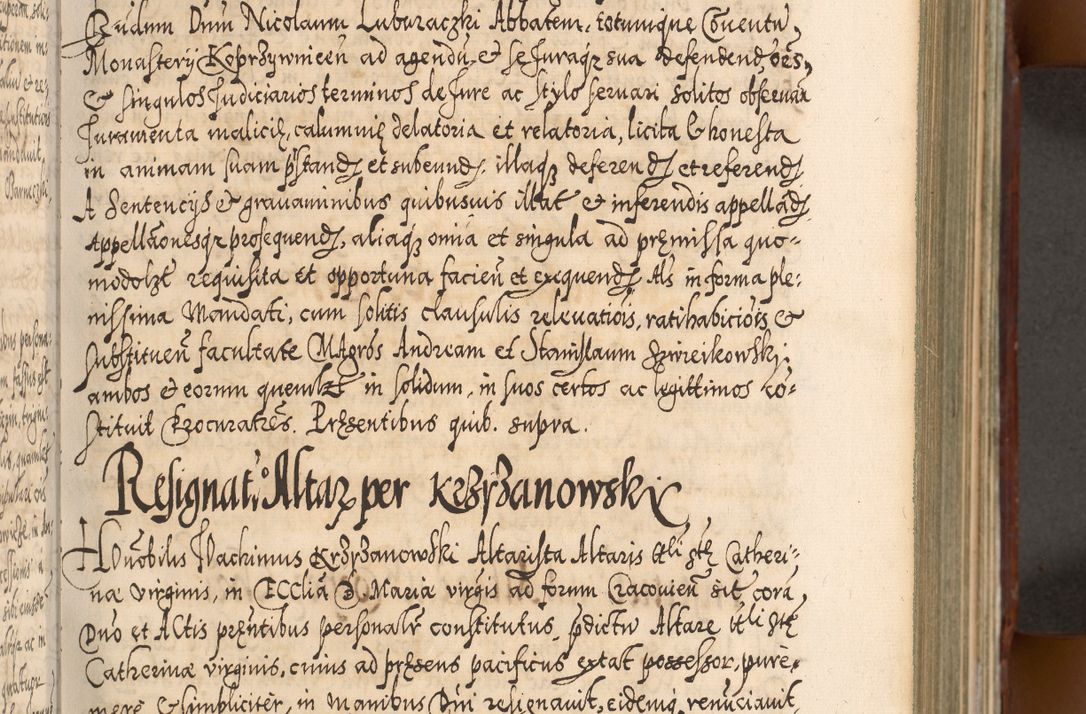 Rndum Dnm Nicolaum Luburaczki Abbatem, totumque Cōuentū
Monasterÿ Koprzÿwniceñ ad agendū et se Juraqz sua defendend, oēs
& singulos Judiciarios terminos de Jure ac stÿlo seruari solitos obseruā
Juramenta malicię, calumnię delatoria et relatoria, licita & honesta
in animam suam pstand et subeund, illaqz deferend et referend
A Sentencÿs & grauaminibus quibusuis illat & inferendis appelland
Appellāonesqz prosequend, aliaqz omīa et singula ad pręmissa quo-
modolzt requisita et opportuna facieñ et exequend, Als in forma ple-
nissima Mandati, cum solitis clausulis releuatiōis, ratihabiciōis &
substitueñ facultate MAgrōs Andream et Stanislaum Zwireikowski
ambos & eorum quemlzt in solidum, in suos certos ac legittimos cō-
stituit Procuratrēs. Pręsentibus quib. supra.
Resignat: Altar per Krzÿzanowski
HOnobilis IOachimus Krzÿzanowski Altarista Altaris tt<sup></sup>li stę Catheri-
næ virginis, in ECClīa B Mariæ virgīs ad forum Cracouieñ sit cora
Dno et Actis pręntibus personalr constitutus, pdictū Altare ttli stę
Catherinæ virginis, cuius ad pręsens pacificus extat possessor, pure
mere & simpliciter, in manibus Dni resignauit, eidemq renūciauit